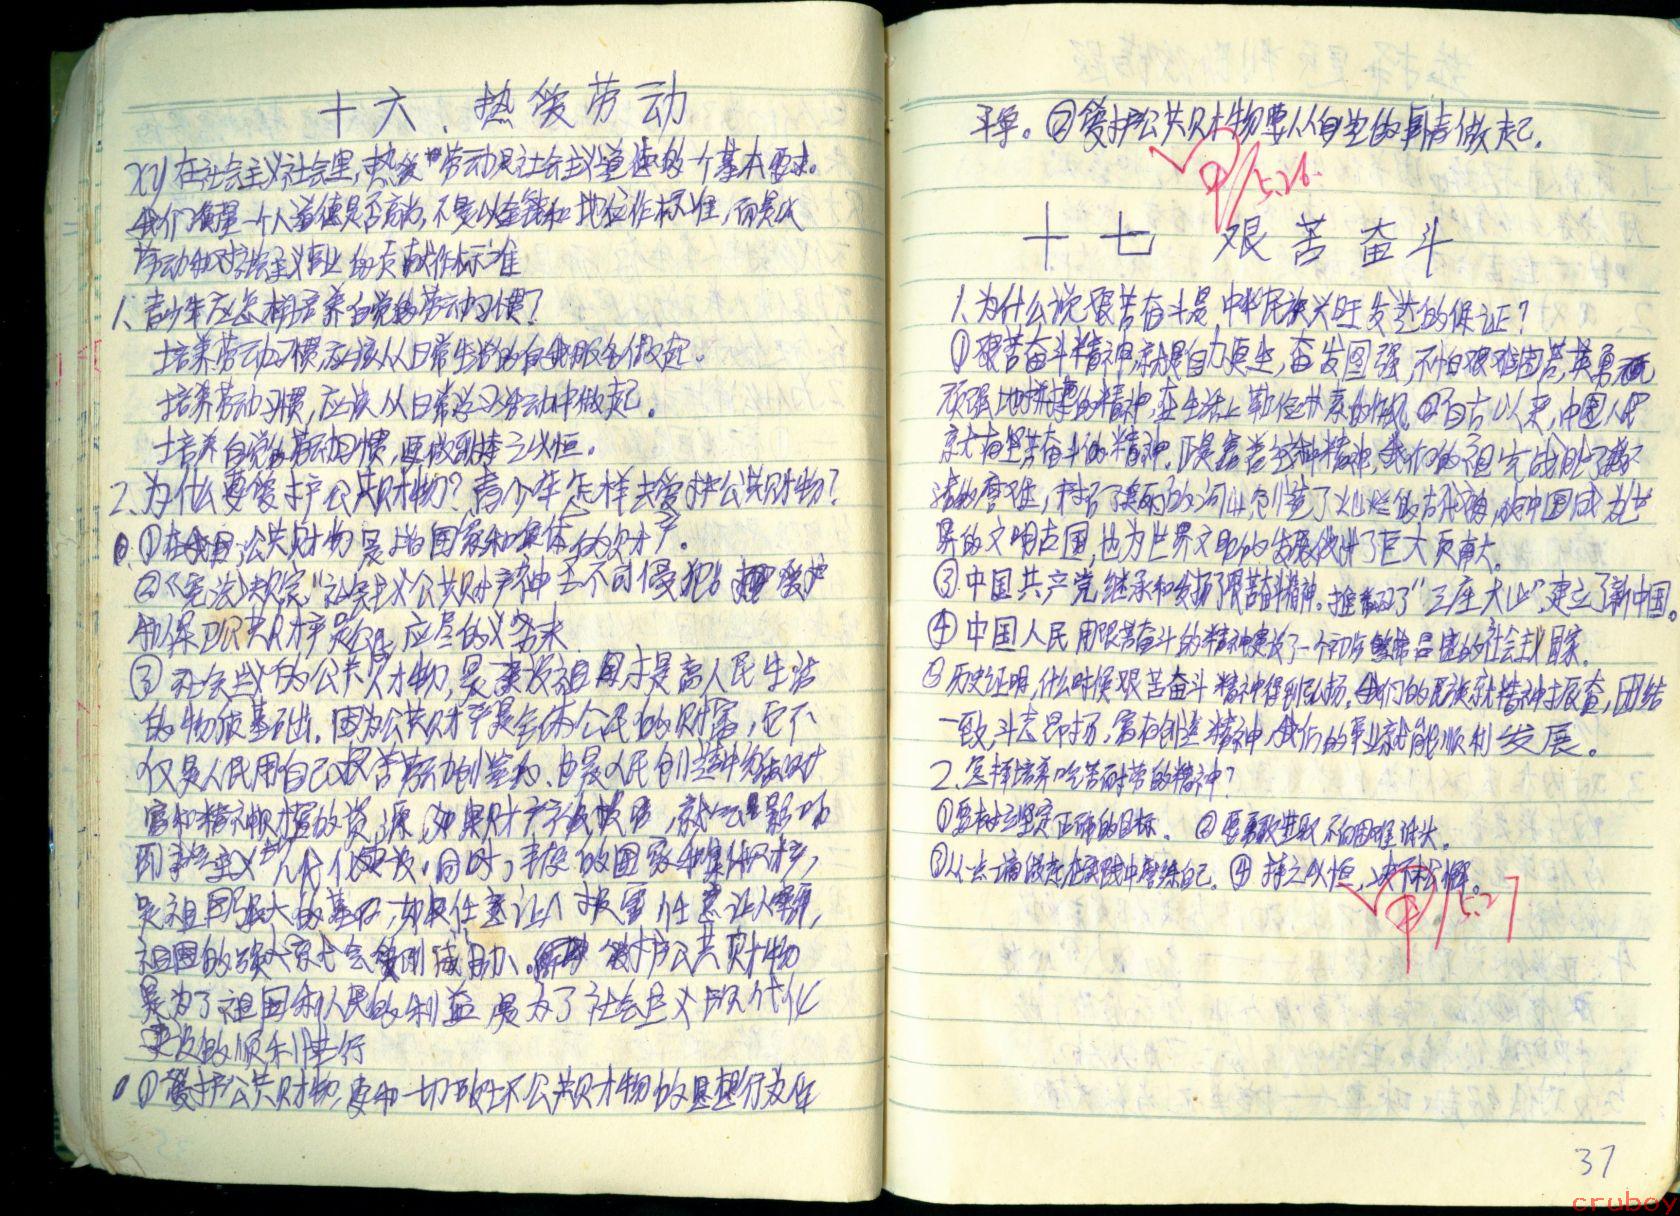 十六、热爱劳动
在社会主义社会里,热爱劳动是社会主义道德的一个基本要求。
我们衡量一个人道德是否高尚,不是以金钱和地位作标准,而是以
劳动和对社会主义事业的贡献作标准
1、青少年应怎样培养自觉的劳动习惯?
培养劳动习惯,应该从日常生活的自我服务做起。
培养劳动习惯,应该从日常学习劳动中做起。
培养自觉的劳动习惯,要做到持之以恒。
2、为什么要爱护公共财物?青少年怎样去爱护公共财物?
①在我国,公共财物是指国家和集体的财产。
②《宪法》规定,“社会主义公共财产神圣不可侵犯”爱护
和保卫公共财产是公民应尽的义务
③社会主义的公共财物,是建设祖国才提高人民生活
的物质基础。因为公共财产是全体人民的财富,它不
仅是人民用自己艰苦劳动创造的,也是人民创造物质财
富和精神财富的资源,如果财产被损害,就会影响
到社会主义现代化建设,同时,丰厚的国家和集体财产,
是祖国强大的基石,如果任意让人损害任意让人挥霍,
祖国的强大就会受到威胁、爱护公共财物
是为了祖国和人民的利益 是为了社会主义现代化
建设的顺利进行
①爱护公共财物,要和一切破坏公共财物的思想行为作
斗争。②爱护公共财物要从自己的事情做起。
甲/5.26.
十七 艰苦奋斗
1、为什么说艰苦奋斗是中华民族兴旺发达的保证?
①艰苦奋斗精神,就是自力更生,奋发图强,不怕艰难困苦,英勇
顽强地拼搏的精神,在生活上勤俭朴素的作风 ②自古以来,中国人民
就有艰苦奋斗的精神。正是靠着这种精神,我们的祖先战胜了数不
清的磨难,开拓了美丽的河山,创造了灿烂的古代文明,使中国成为世
界的文明古国,也为世界文明的发展做出了巨大贡献。
③中国共产党继承和发扬了艰苦奋斗精神。推翻了“三座大山”,建立了新中国。
④中国人民用艰苦奋斗的精神建设了一个初步繁荣昌盛的社会主义国家。
⑤历史证明,什么时候艰苦奋斗精神得到弘扬,我们的民族就精神振奋,团结
一致,斗志昂扬,富有创造精神,我们的事业就能顺利发展。
2、怎样培养吃苦耐劳的精神?
①要树立坚定正确的目标。 ②要勇敢进取 不向困难低头。
③从点滴做起在实践中磨练自己。 ④持之以恒,决不松懈。
甲/5.27
37
cruboy